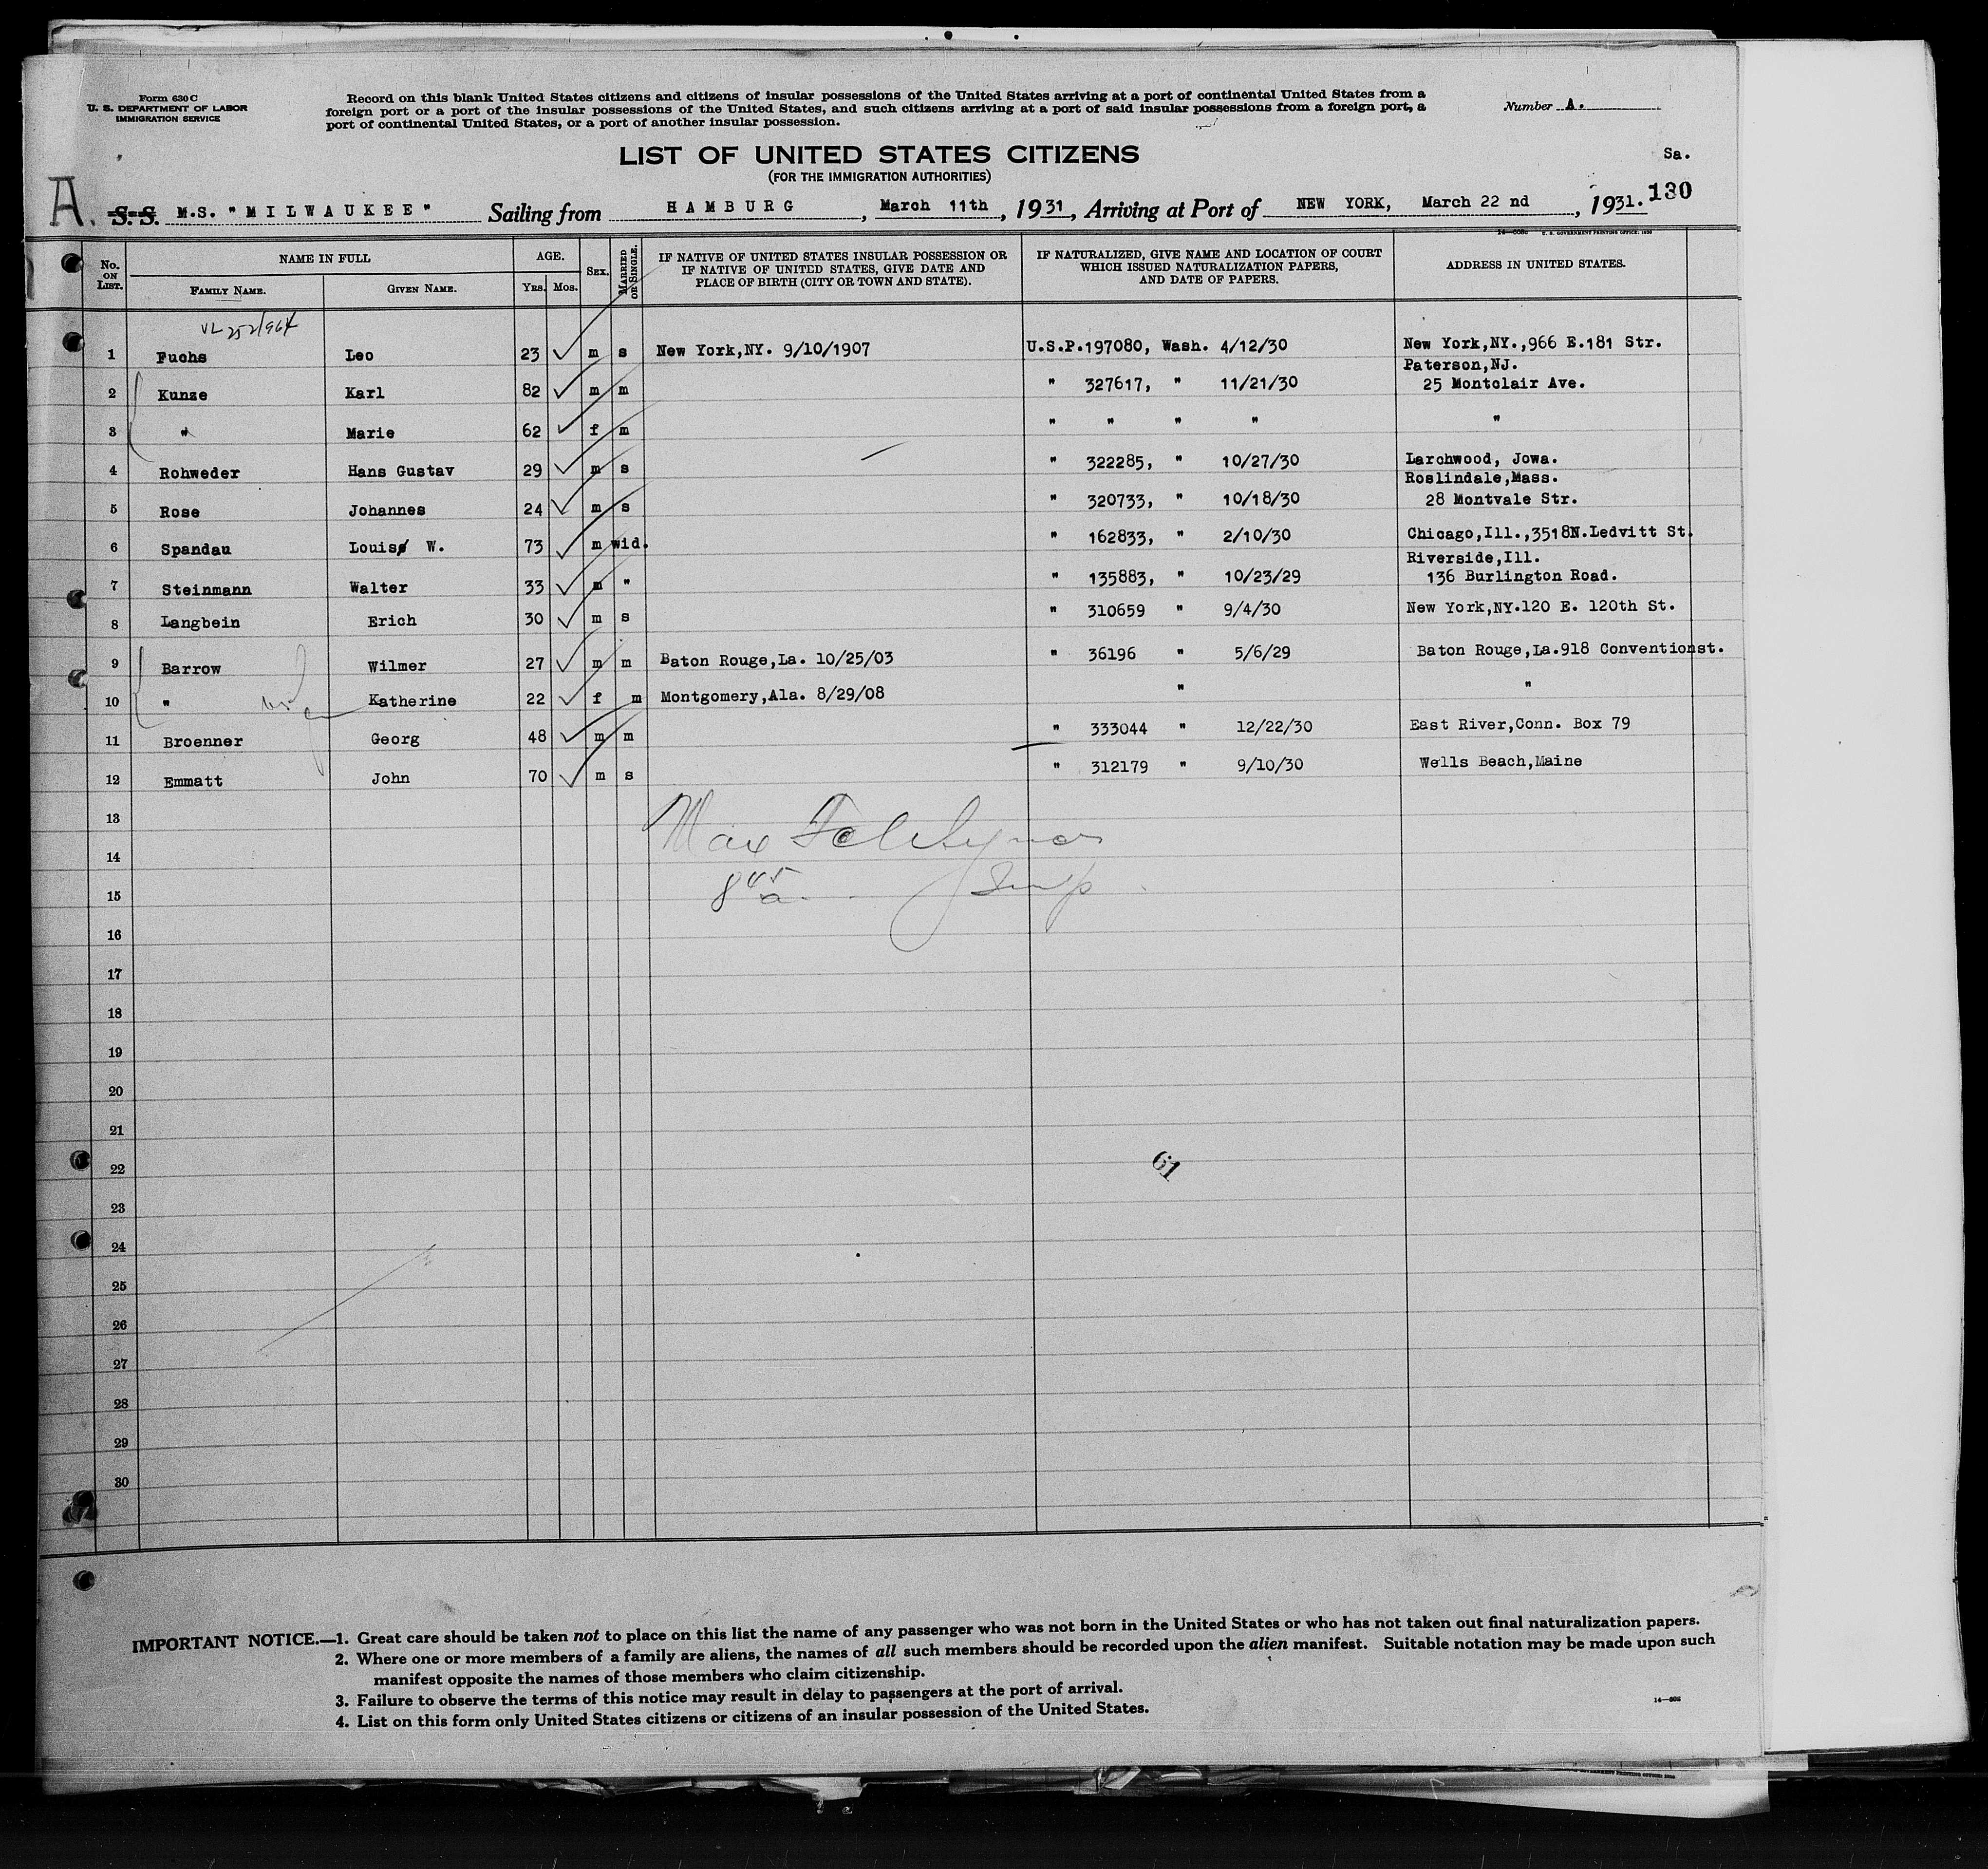 Form 630 C
U. S. DEPARTMENT OF LABOR
IMMIGRATION SERVICE
Record on this blank United States citizens and citizens of insular possessions of the United States arriving at a port of continental United States from a
foreign port or a port of the insular possessions of the United States, and such citizens arriving at a port of said insular possessions from a foreign port, a
port of continental United States, or a port of another insular possession.
Number A.
LIST OF UNITED STATES CITIZENS
Sa.
(FOR THE IMMIGRATION AUTHORITIES)
A. S.S. M.S. "MILWAUKEE" Sailing from HAMBURG, March 11th, 1931, Arriving at Port of NEW YORK, March 22 nd, 1931. 130
No. ON LIST. NAME IN FULL AGE. SEX. MARRIED OR SINGLE. IF NATIVE OF UNITED STATES INSULAR POSSESSION OR IF NATIVE OF UNITED STATES, GIVE DATE AND PLACE OF BIRTH (CITY OR TOWN AND STATE). IF NATURALIZED, GIVE NAME AND LOCATION OF COURT WHICH ISSUED NATURALIZATION PAPERS, AND DATE OF PAPERS. ADDRESS IN UNITED STATES.
FAMILY NAME. GIVEN NAME. YRS. MOS.
VL 252/964
1 Fuchs Leo 23 m s New York,NY. 9/10/1907 U.S.P.197080, Wash. 4/12/30 New York,NY.,966 E.181 Str.
Paterson,NJ.
2 Kunze Karl 82 m m " 327617, " 11/21/30 25 Montclair Ave.
3 " Marie 62 f m " " " " "
4 Rohweder Hans Gustav 29 m s " 322285, " 10/27/30 Larchwood, Jowa.
Roslindale,Mass.
5 Rose Johannes 24 m s " 320733, " 10/18/30 28 Montvale Str.
6 Spandau Louis W. 73 m wid. " 162833, " 2/10/30 Chicago,Ill.,3518N.Ledvitt St.
Riverside,Ill.
7 Steinmann Walter 33 m " " 135883, " 10/23/29 136 Burlington Road.
8 Langbein Erich 30 m s " 310659 " 9/4/30 New York,NY.120 E. 120th St.
9 Barrow Wilmer 27 m m Baton Rouge,La. 10/25/03 " 36196 " 5/6/29 Baton Rouge,La.918 Conventionst.
10 " Katherine 22 f m Montgomery,Ala. 8/29/08 " "
11 Broenner Georg 48 m m " 333044 " 12/22/30 East River,Conn. Box 79
12 Emmatt John 70 m s " 312179 " 9/10/30 Wells Beach,Maine
13
Max
14
8 45 a
15
16
17
18
19
20
21
61
22
23
24
25
26
27
28
29
30
IMPORTANT NOTICE.—1. Great care should be taken not to place on this list the name of any passenger who was not born in the United States or who has not taken out final naturalization papers.
2. Where one or more members of a family are aliens, the names of all such members should be recorded upon the alien manifest. Suitable notation may be made upon such
manifest opposite the names of those members who claim citizenship.
3. Failure to observe the terms of this notice may result in delay to passengers at the port of arrival.
4. List on this form only United States citizens or citizens of an insular possession of the United States.